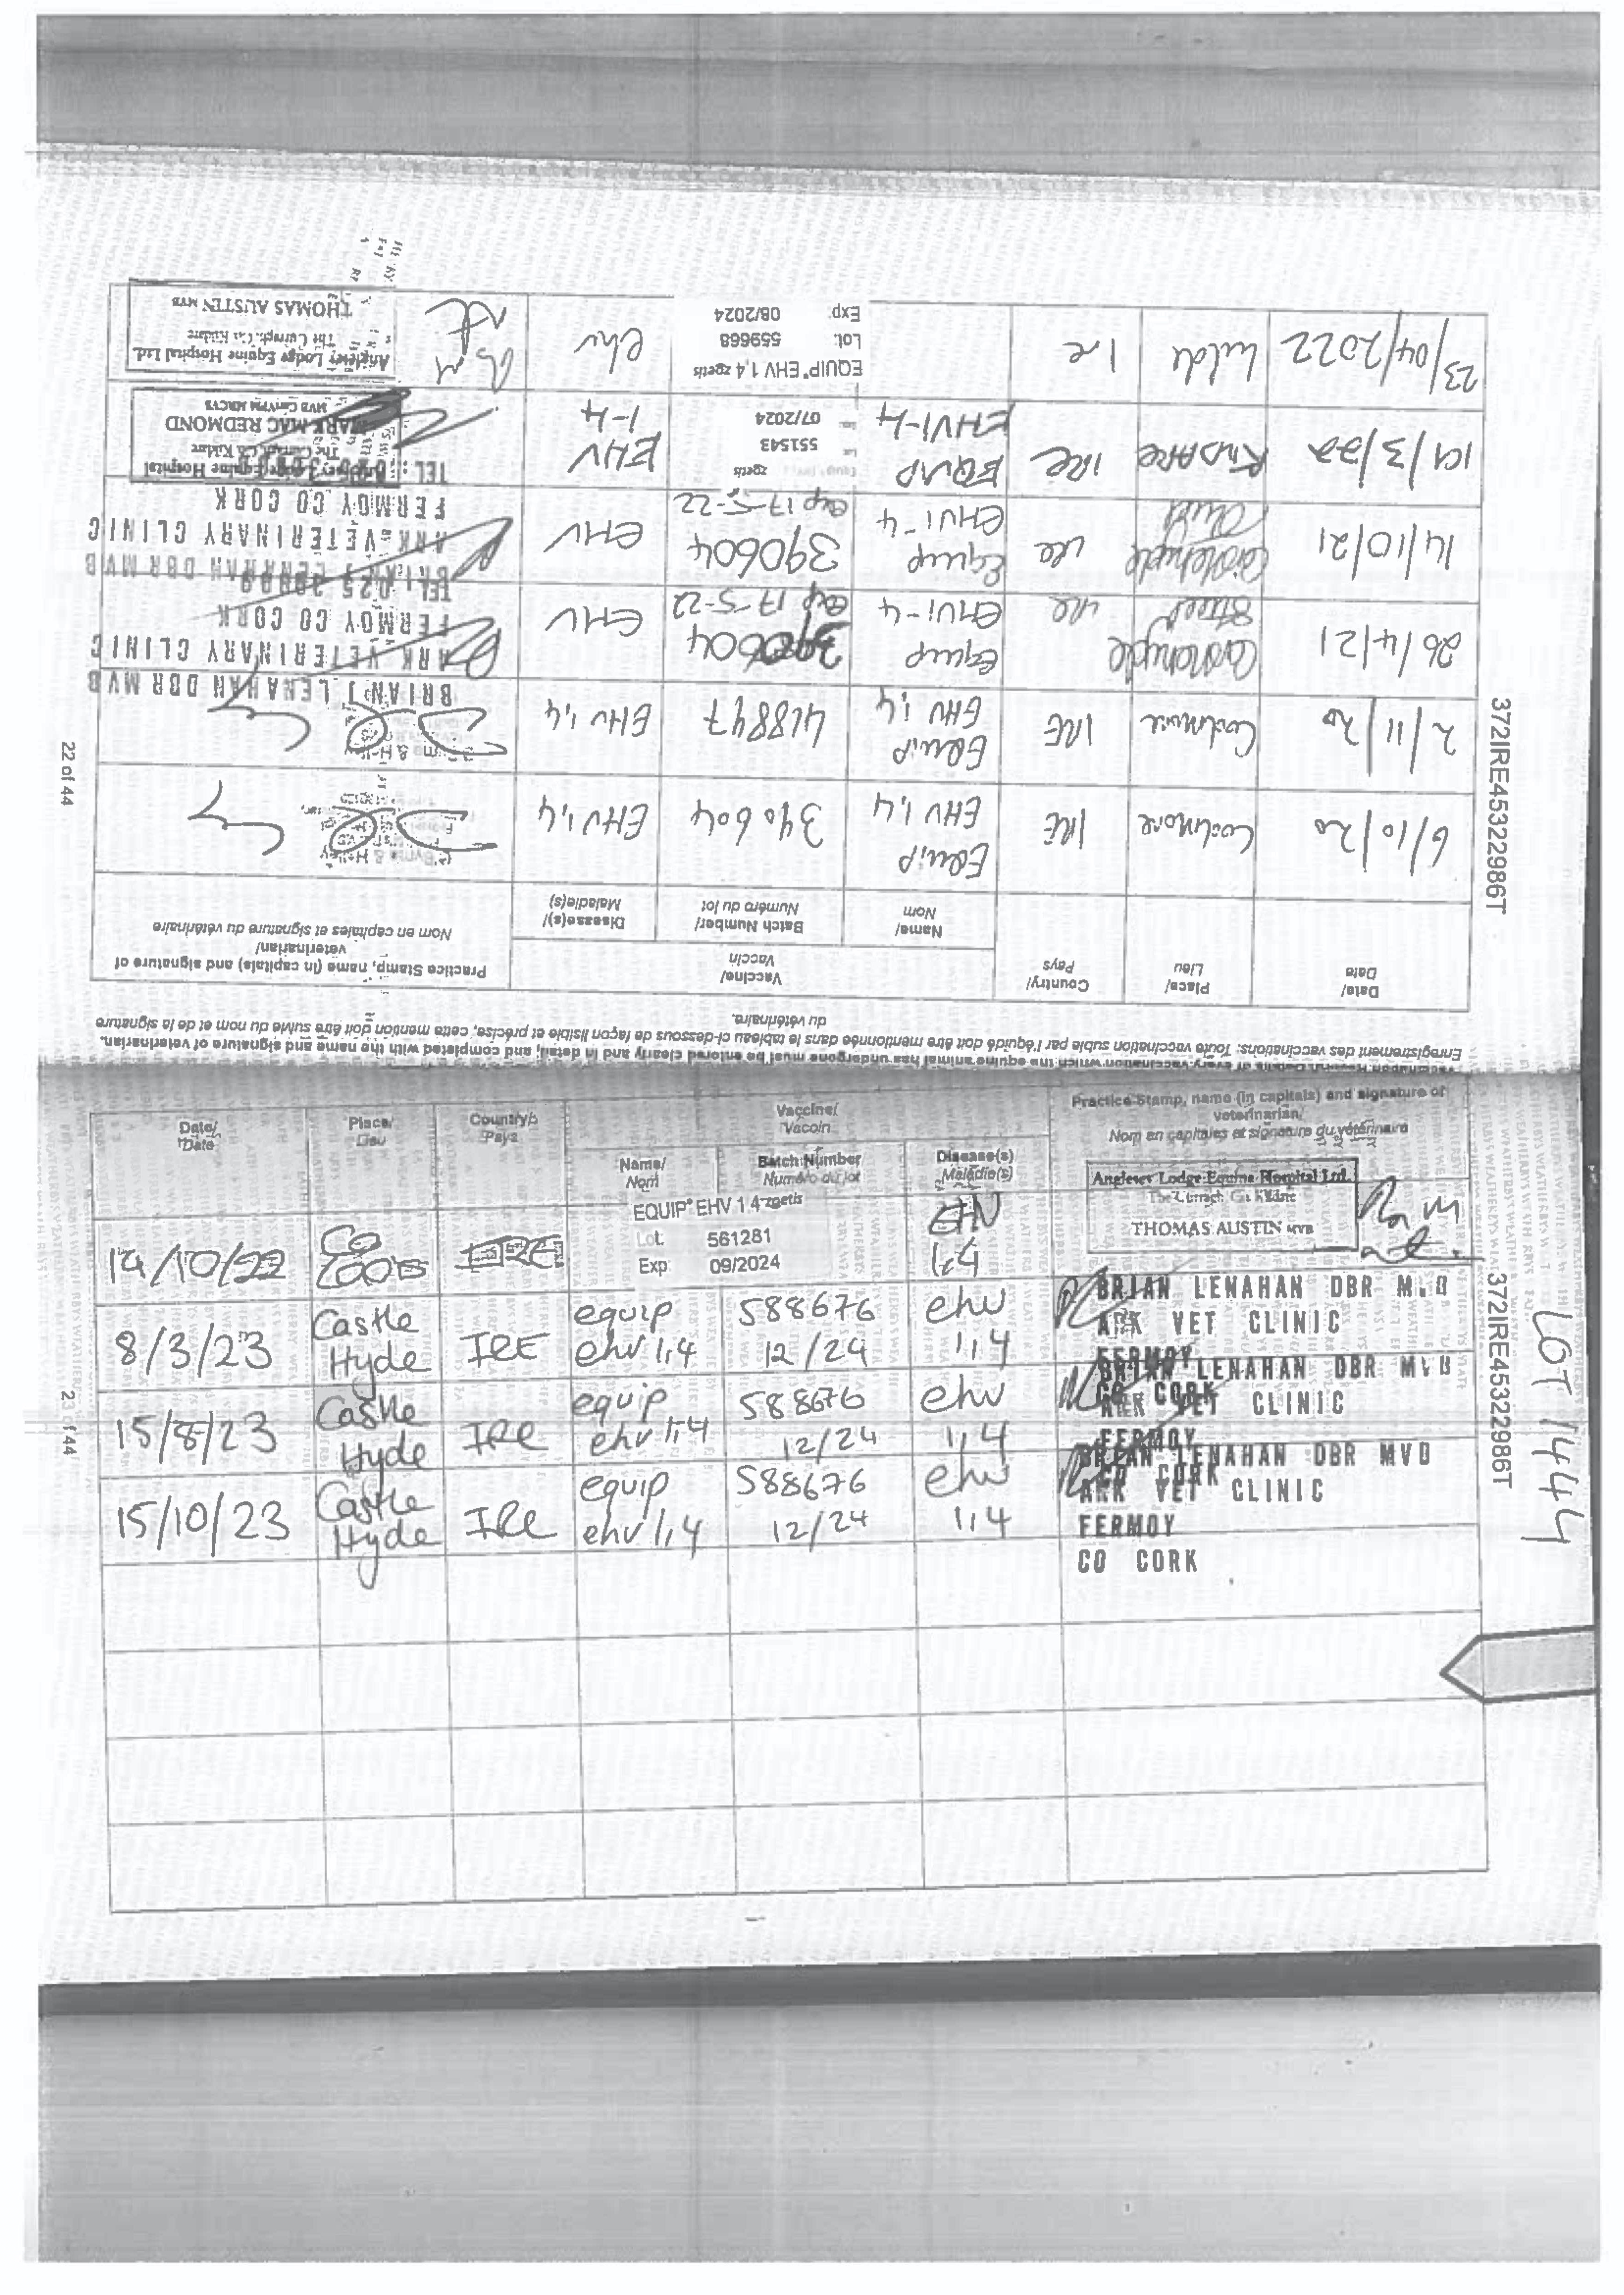 Vaccination Record: Details of every vaccination which the equine animal has undergone must be entered clearly and in detail, and completed with the name and signature of veterinarian.
Enregistrement des vaccinations: Toute vaccination subie par l'équidé doit être mentionnée dans le tableau ci-dessous de façon lisible et précise, cette mention doit être suivie du nom et de la signature
du vétérinaire.
Date/ Date
Place/ Lieu
Country/ Pays
Vaccine/ Vaccin
Name/ Nom
Batch Number/ Numéro du lot
Disease(s)/ Maladie(s)
Practice Stamp, name (in capitals) and signature of
veterinarian/
Nom en capitales et signature du vétérinaire
6/10/20 Coolmore IRE Equip EHV 1,4 390604 EHV 1,4
2/11/20 Coolmore IRE Equip EHV 1,4 418847 EHV 1,4
26/4/21 Castlehyde Stud Ire Equip EHV1-4 390604 exp 17-5-22 EHV
BRIAN J LENAHAN DBR MVB
ARK VETERINARY CLINIC
FERMOY CO CORK
14/10/21 Castlehyde Stud Ire Equip EHV1-4 390604 exp 17-5-22 EHV
BRIAN J LENAHAN DBR MVB
ARK VETERINARY CLINIC
FERMOY CO CORK
19/3/22 KILDARE IRE EQUIP EHV1-4 551543 07/2024 zoetis EHV 1-4
Anglesey Lodge Equine Hospital
The Curragh, Co. Kildare
MARK MAC REDMOND
23/04/2022 Ire EQUIP® EHV 1,4 zoetis
Lot: 559668
Exp: 08/2024
ehv
Anglesey Lodge Equine Hospital Ltd.
The Curragh, Co. Kildare
THOMAS AUSTIN MVB
22 of 44
372IRE45322986T
Date/ Date
Place/ Lieu
Country/ Pays
Vaccine/ Vaccin
Name/ Nom
Batch Number Numéro du lot
Disease(s) Maladie(s)
Practice Stamp, name (in capitals) and signature of
veterinarian/
Nom en capitales et signature du vétérinaire
14/10/22 IRE EQUIP® EHV 1,4 zoetis
Lot: 561281
Exp 09/2024
EHV 1,4
Anglesey Lodge Equine Hospital Ltd.
The Curragh, Co. Kildare
THOMAS AUSTIN MVB
8/3/23 Castle Hyde IRE equip ehv 1,4 588676 12/24 ehv 1,4
BRIAN LENAHAN DBR MVB
ARK VET CLINIC
FERMOY
CO CORK
15/8/23 Castle Hyde IRE equip ehv 1,4 588676 12/24 ehv 1,4
BRIAN LENAHAN DBR MVB
ARK VET CLINIC
FERMOY
CO CORK
15/10/23 Castle Hyde IRE equip ehv 1,4 588676 12/24 ehv 1,4
BRIAN LENAHAN DBR MVB
ARK VET CLINIC
FERMOY
CO CORK
372IRE45322986T
LOT 1444